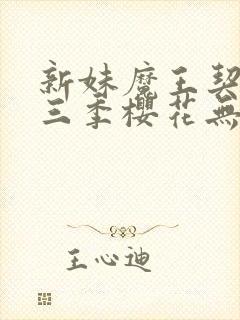 新妹魔王契
三季櫻花無
王心迪